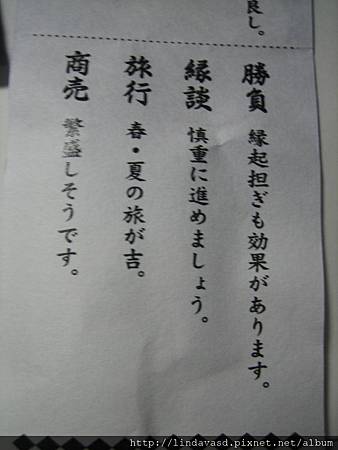 良し。
勝負 縁起担ぎも効果があります。
縁談 慎重に進めましょう。
旅行 春・夏の旅が吉。
商売 繁盛しそうです。
http://lindavasd.pixnet.net/album